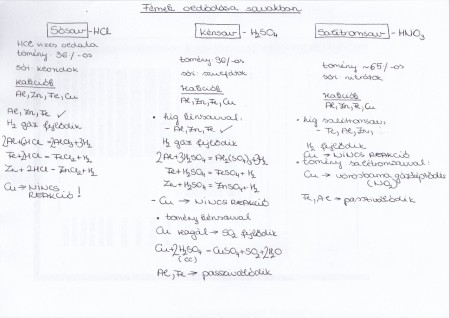 Fémek oldódása savakban
Sósav - HCl
HCl vizes oldata
tömény: 36%-os
sói: kloridok
REAKCIÓK
Al, Zn, Fe, Cu
Al, Zn, Fe ✓
H2 gáz fejlődik
2Al+6HCl → 2AlCl3+3H2
Fe+2HCl → FeCl2+H2
Zn+2HCl → ZnCl2+H2
Cu → NINCS REAKCIÓ!
Kénsav - H2SO4
tömény: 98%-os
sói: szulfátok
REAKCIÓK
Al, Zn, Fe, Cu
• híg kénsavval:
- Al, Zn, Fe ✓
H2 gáz fejlődik
2Al+3H2SO4 = Al2(SO4)3+3H2
Fe+H2SO4 = FeSO4+H2
Zn+H2SO4 = ZnSO4+H2
- Cu → NINCS REAKCIÓ
• tömény kénsavval
Cu reagál → SO2 fejlődik
Cu+2H2SO4 = CuSO4+SO2+2H2O
(cc)
Al, Fe → passziválódik
Salétromsav - HNO3
tömény ~65%-os
sói: nitrátok
REAKCIÓK
Al, Zn, Fe, Cu
• híg salétromsav:
- Fe, Al, Zn,
H2 fejlődik
Cu → NINCS REAKCIÓ
• tömény salétromsavval:
Cu → vörösbarna gázfejlődés
(NO2)
Fe, Al → passziválódik